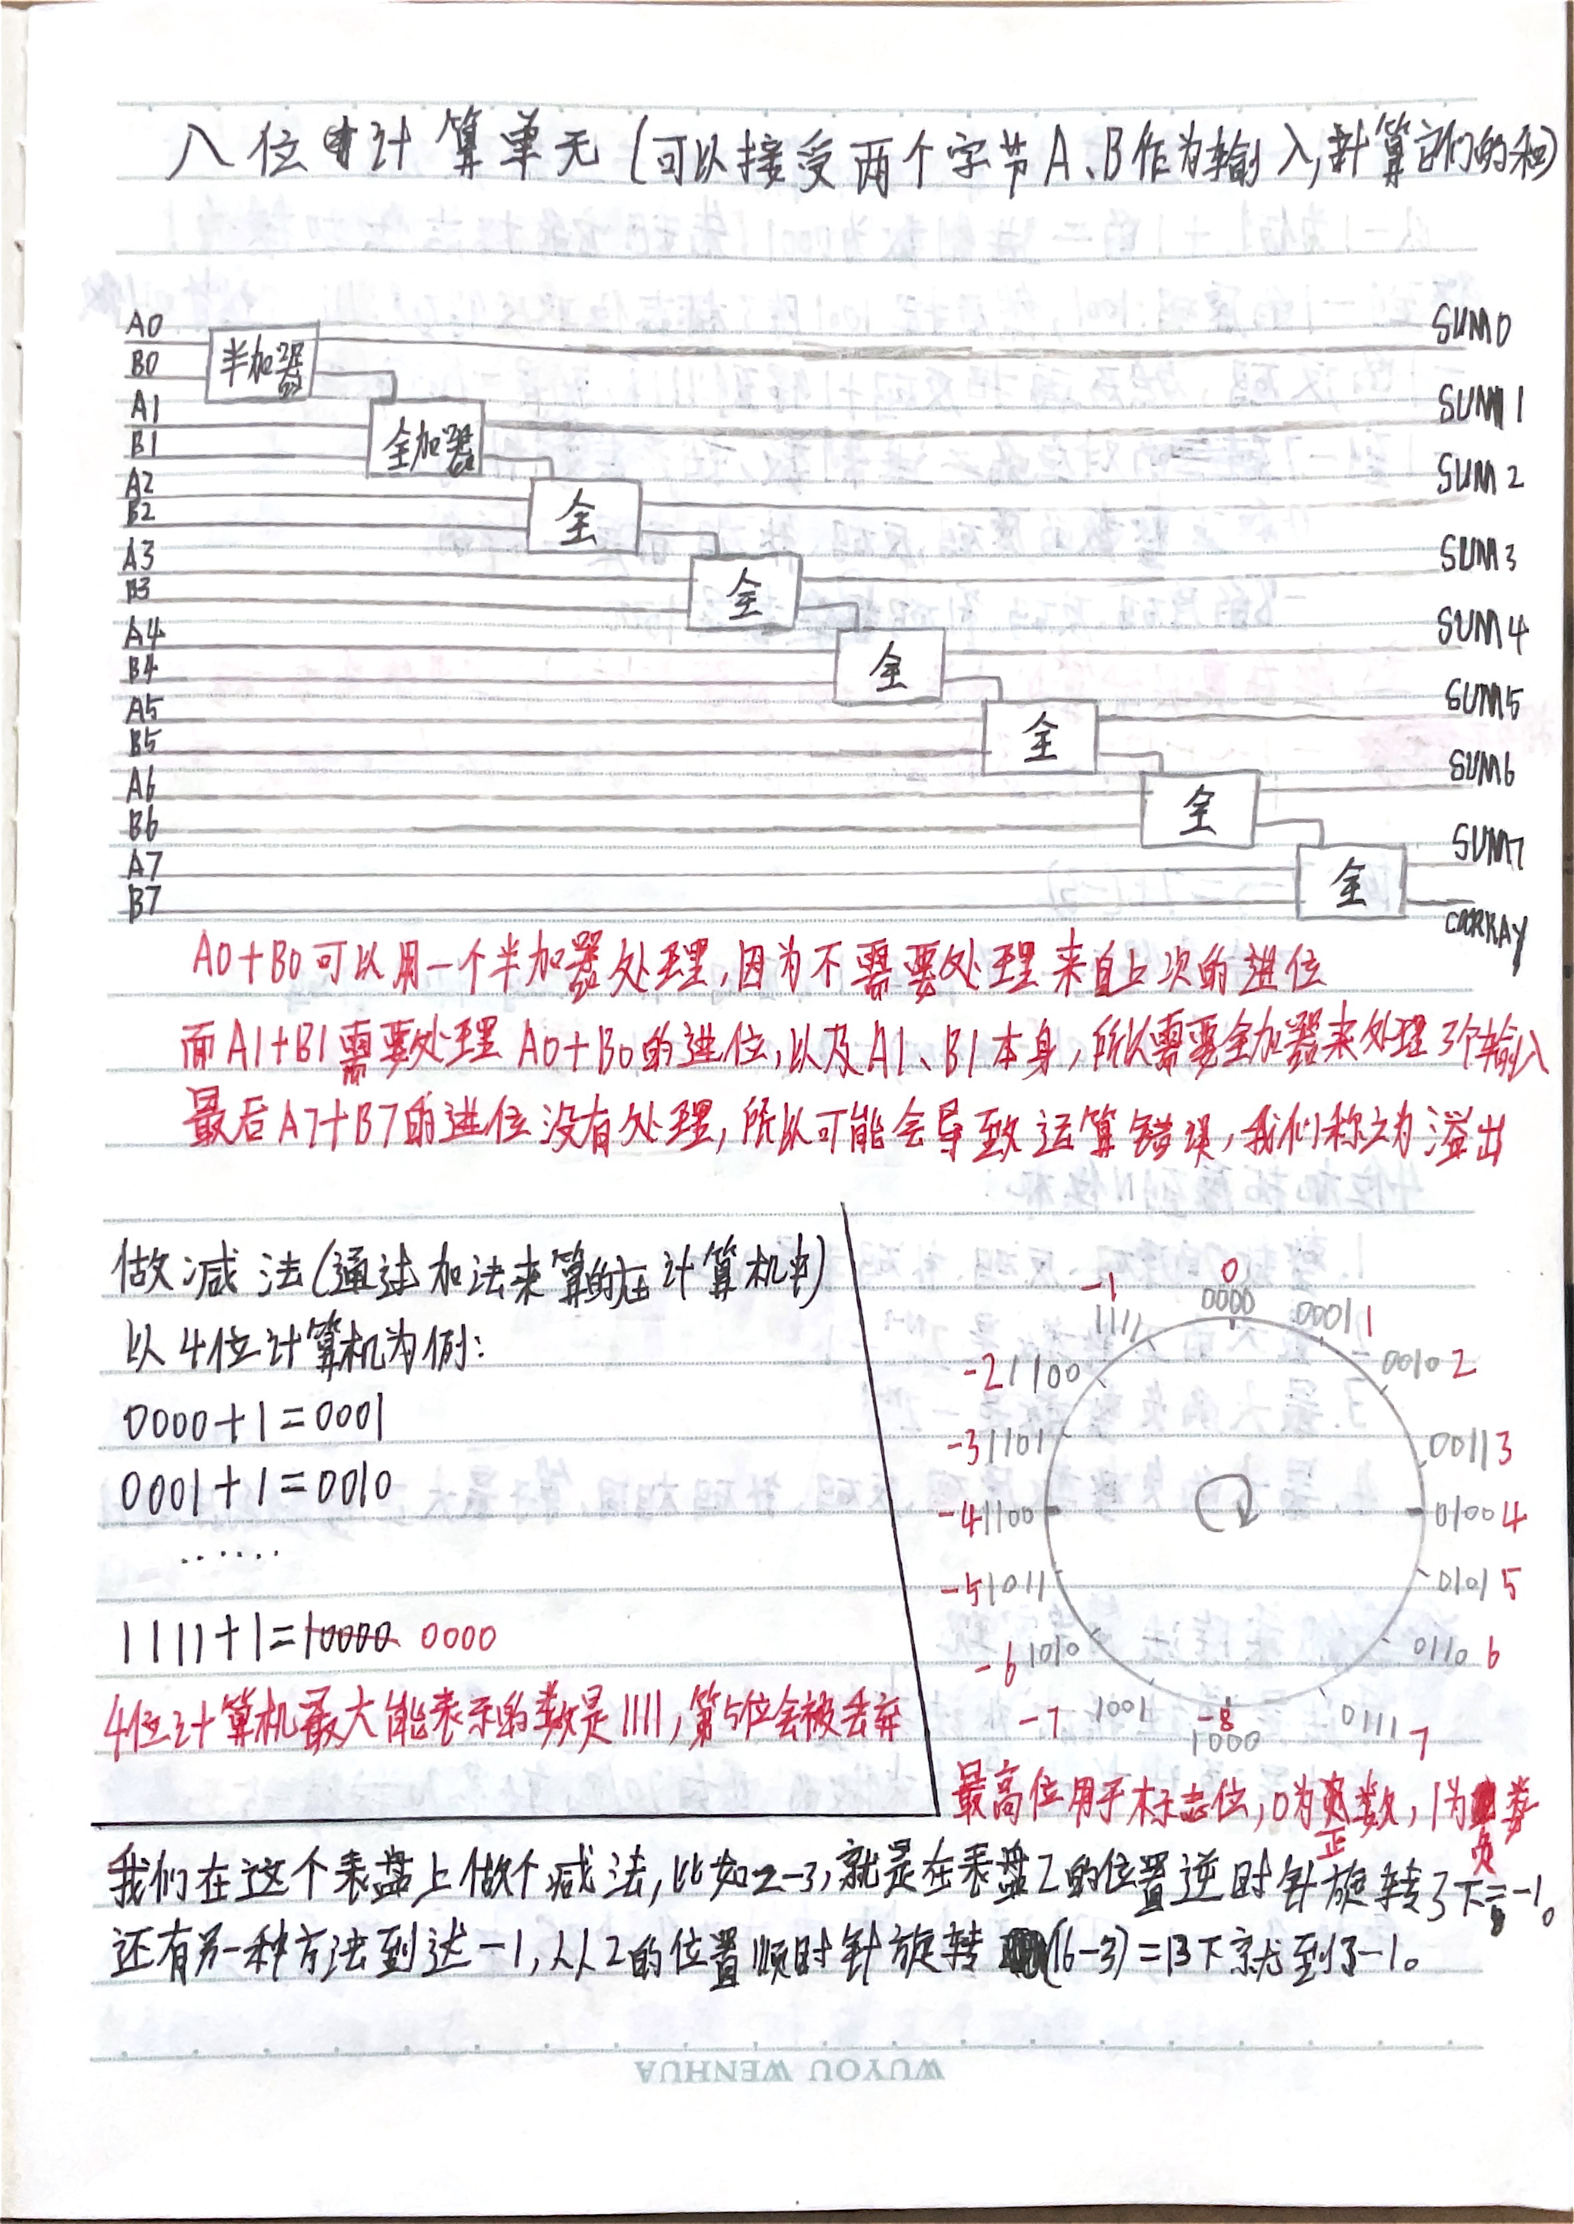 八位计算单元(可以接受两个字节A、B作为输入,计算它们的和)
A0
B0
A1
B1
A2
B2
A3
B3
A4
B4
A5
B5
A6
B6
A7
B7
半加器
全加器
全
全
全
全
全
全
SUM0
SUM1
SUM2
SUM3
SUM4
SUM5
SUM6
SUM7
CARRAY
A0+B0可以用一个半加器处理,因为不需要处理来自上次的进位
而A1+B1需要处理A0+B0的进位,以及A1、B1本身,所以需要全加器来处理3个输入
最后A7+B7的进位没有处理,所以可能会导致运算错误,我们称之为溢出
做减法(通过加法来算的在计算机中)
以4位计算机为例:
0000+1=0001
0001+1=0010
......
1111+1=10000 0000
4位计算机最大能表示的数是1111,第5位会被丢弃
0
0000
0001 1
0010 2
0011 3
0100 4
0101 5
0110 6
0111 7
-8
1000
-7 1001
-6 1010
-5 1011
-4 1100
-3 1101
-2 1100
-1
1111
最高位用于标志位,0为正数,1为负数
我们在这个表盘上做个减法,比如2-3,就是在表盘2的位置逆时针旋转3下=-1。
还有另一种方法到达-1,从2的位置顺时针旋转(16-3)=13下就到了-1。
WUYOU WENHUA